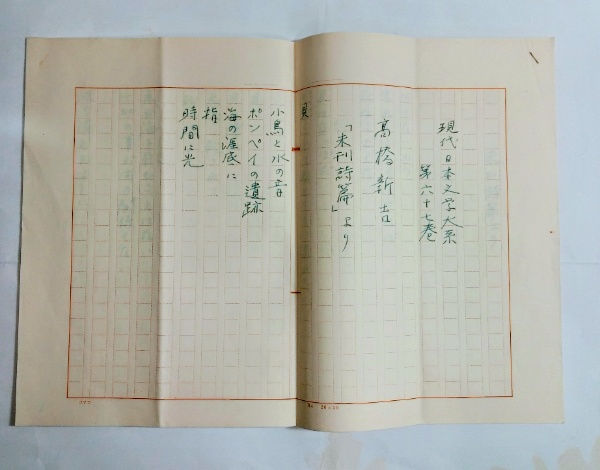 現代日本文学大系
第六十七巻
高橋新吉
「未刊詩篇」より
貝
小鳥と水の音
ポンペイの遺跡
海の涯底に
指
時間に光